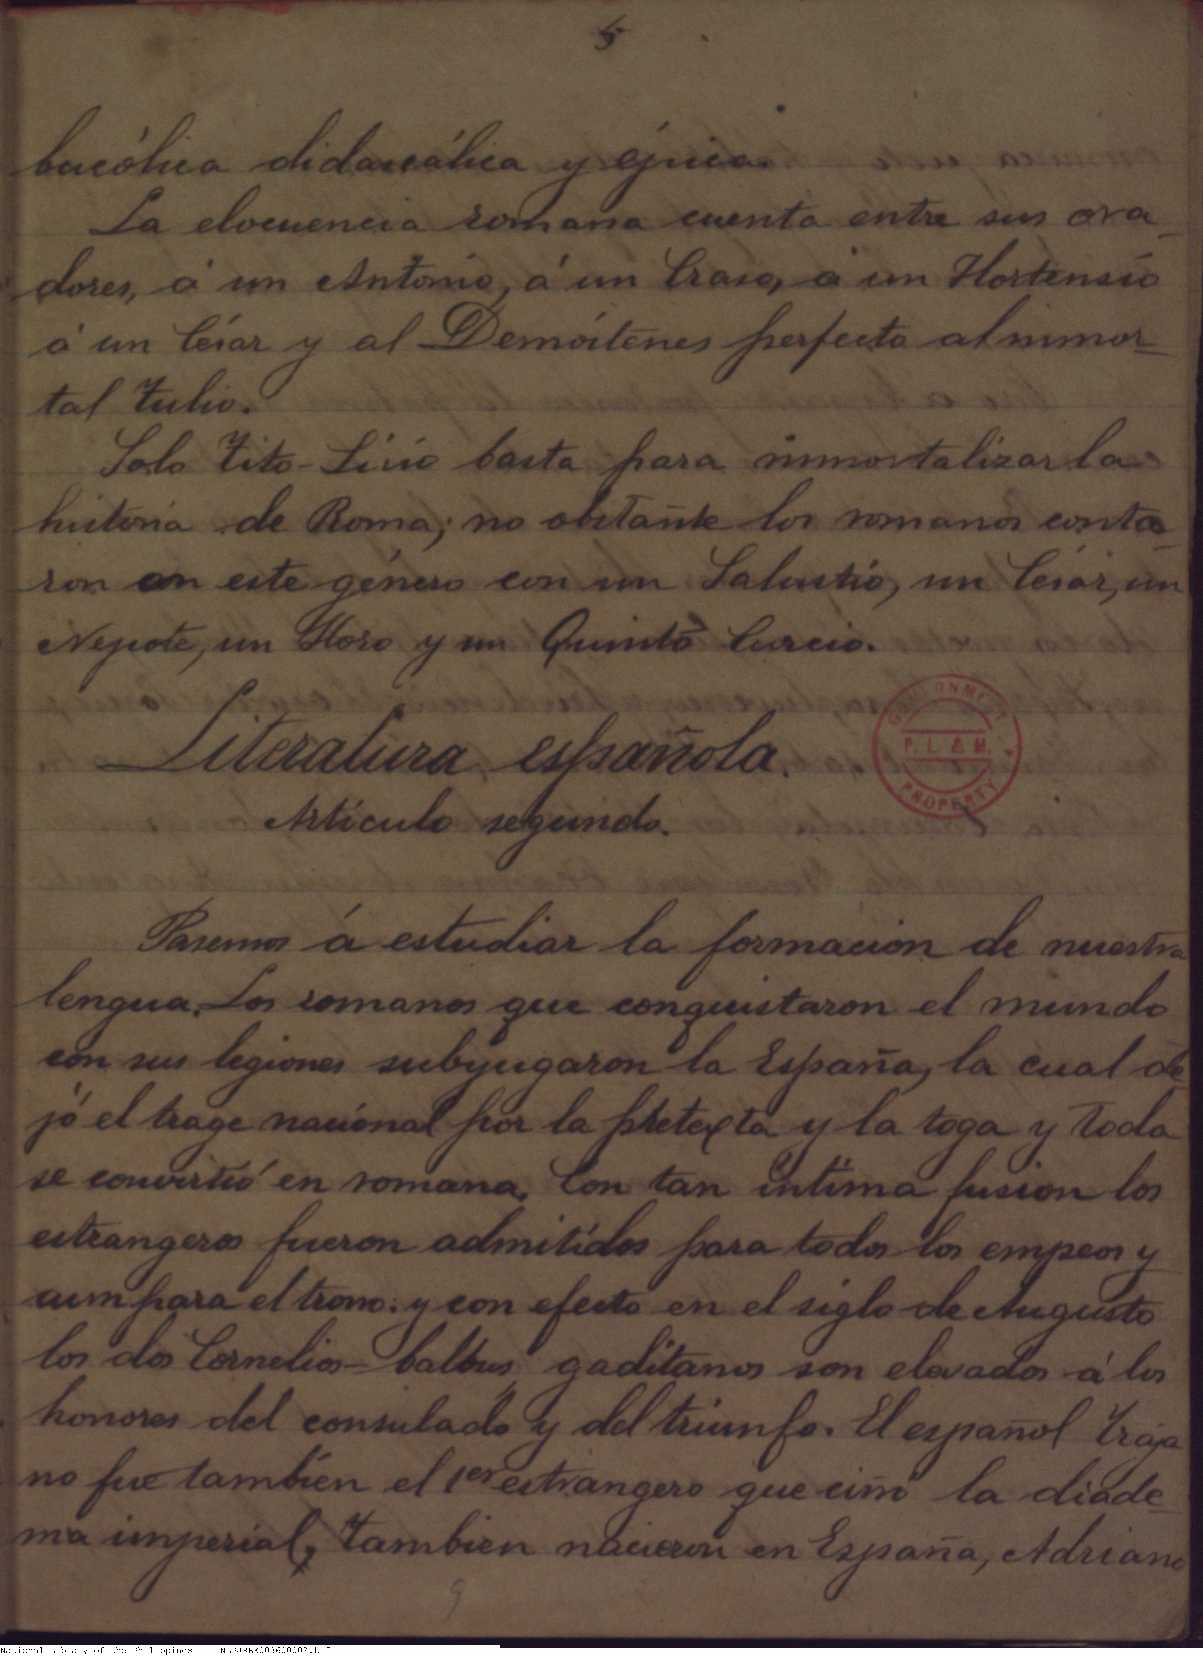 5
bucólica didascálica y épica.
La elocuencia romana cuenta entre sus ora-
dores, á un Antonio, á un Craso, á un Hortensio
á un César y al Demóstenes perfecto al inmor-
tal Tulio.
Solo Tito-Livio basta para inmortalizar la
historia de Roma; no obstante los romanos conta-
ron en este género con un Salustio, un César, un
Nepote, un Floro y un Quinto Curcio.
Literatura española.
Artículo segundo.
GOVERNMENT
P. L. & M.
PROPERTY
Pasemos á estudiar la formacion de nuestra
lengua. Los romanos que conquistaron el mundo
con sus legiones subyugaron la España, la cual de-
jó el trage nacional por la pretexta y la toga y toda
se convirtió en romana. Con tan íntima fusion los
estrangeros fueron admitidos para todos los empeos y
aum para el trono. y con efecto en el siglo de Augusto
los dos Cornelios-balbus gaditanos son elevados á los
honores del consulado y del triunfo. El español Traja
no fue tambien el 1er estrangero que ciñó la diade-
ma imperial, Tambien nacieron en España, Adriano
National Library of the Philippines